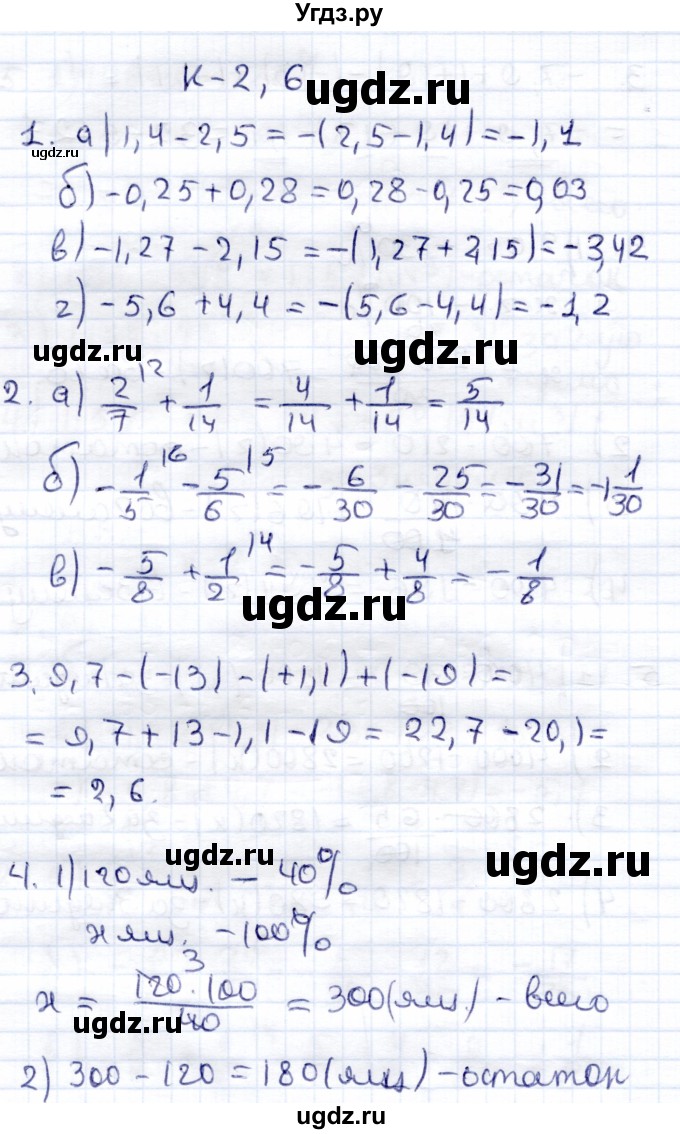 Угдз.ру
К-2, б
ugdz.ru
1. а) 1,4 - 2,5 = -(2,5 - 1,4) = -1,1
ugdz.ru
б) -0,25 + 0,28 = 0,28 - 0,25 = 0,03
в) -1,27 - 2,15 = -(1,27 + 2,15) = -3,42
г) -5,6 + 4,4 = -(5,6 - 4,4) = -1,2
ugdz.ru ugdz.ru
2. а) 2/7 \2 + 1/14 = 4/14 + 1/14 = 5/14
б) -1/5 \6 - 5/6 \5 = -6/30 - 25/30 = -31/30 = -1 1/30
в) -5/8 + 1/2 \4 = -5/8 + 4/8 = -1/8
ugdz.ru
3. 9,7 - (-13) - (+1,1) + (-19) =
= 9,7 + 13 - 1,1 - 19 = 22,7 - 20,1 =
= 2,6.
ugdz.ru ugdz.ru
4. 1) 120 ящ. - 40%
х ящ. - 100%
х = 120 · 100 / 40 = 300 (ящ.) - всего
3
ugdz.ru
2) 300 - 120 = 180 (ящ) - остаток
ugdz.ru